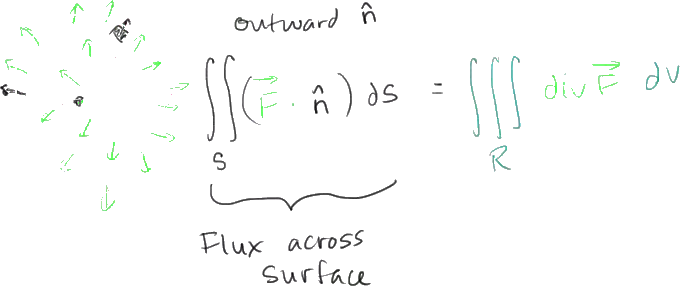 outward n̂
∬_S (F⃗ · n̂) dS = ∭_R div F⃗ dV
Flux across
surface